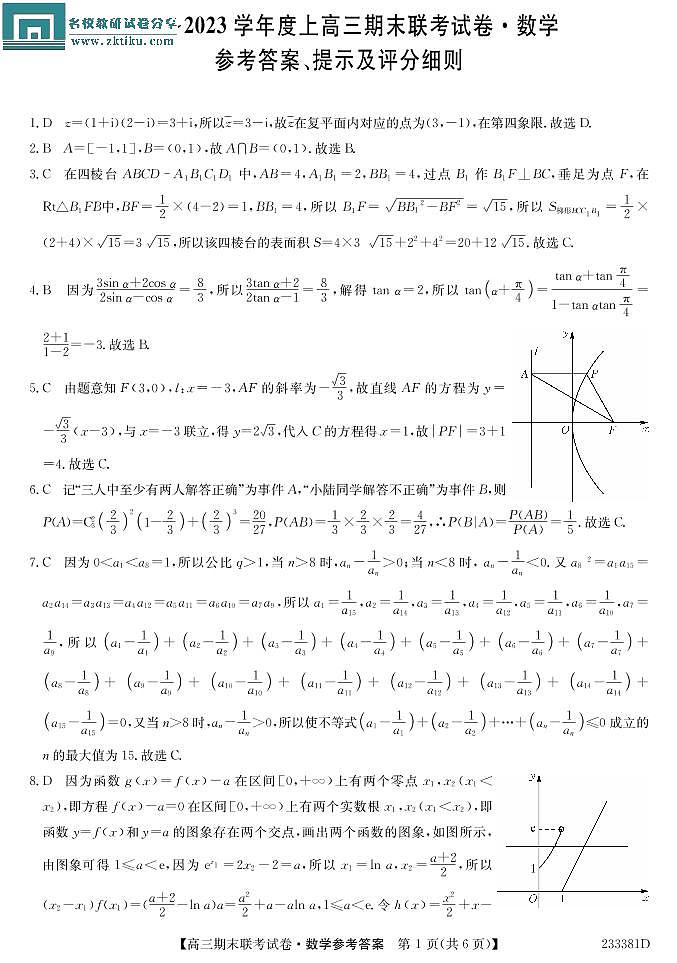 名校教研试卷分享
www.zktiku.com
2023 学年度上高三期末联考试卷·数学
参考答案、提示及评分细则
1. D z=(1+i)(2-i)=3+i,所以z̄=3-i,故z̄在复平面内对应的点为(3,-1),在第四象限.故选 D.
2. B A=[-1,1],B=(0,1),故 A∩B=(0,1).故选 B.
3. C 在四棱台 ABCD-A₁B₁C₁D₁ 中,AB=4,A₁B₁=2,BB₁=4,过点 B₁ 作 B₁F⊥BC,垂足为点 F,在
Rt△B₁FB中,BF=1/2×(4-2)=1,BB₁=4,所以 B₁F=√(BB₁²-BF²)=√15,所以 S梯形BCC₁B₁=1/2×
(2+4)×√15=3√15,所以该四棱台的表面积 S=4×3 √15+2²+4²=20+12√15.故选 C.
4. B 因为(3sin α+2cos α)/(2sin α-cos α)=8/3,所以(3tan α+2)/(2tan α-1)=8/3,解得 tan α=2,所以 tan(α+π/4)=(tan α+tan π/4)/(1-tan αtan π/4)=
(2+1)/(1-2)=-3.故选 B.
5. C 由题意知 F(3,0),l:x=-3,AF 的斜率为-√3/3,故直线 AF 的方程为 y=
-√3/3(x-3),与 x=-3联立,得 y=2√3,代入 C 的方程得 x=1,故|PF|=3+1
=4.故选 C.
y
l
A
P
O
F
x
6. C 记“三人中至少有两人解答正确”为事件 A,“小陆同学解答不正确”为事件 B,则
P(A)=C₃²(2/3)²(1-2/3)+(2/3)³=20/27,P(AB)=1/3×2/3×2/3=4/27,∴P(B|A)=P(AB)/P(A)=1/5.故选 C.
7. C 因为 0<a₁<a₈=1,所以公比 q>1,当 n>8 时,aₙ-1/aₙ>0;当 n<8 时, aₙ-1/aₙ<0.又 a₈²=a₁a₁₅=
a₂a₁₄=a₃a₁₃=a₄a₁₂=a₅a₁₁=a₆a₁₀=a₇a₉,所以 a₁=1/a₁₅,a₂=1/a₁₄,a₃=1/a₁₃,a₄=1/a₁₂,a₅=1/a₁₁,a₆=1/a₁₀,a₇=
1/a₉,所以(a₁-1/a₁)+(a₂-1/a₂)+(a₃-1/a₃)+(a₄-1/a₄)+(a₅-1/a₅)+(a₆-1/a₆)+(a₇-1/a₇)+
(a₈-1/a₈)+(a₉-1/a₉)+(a₁₀-1/a₁₀)+(a₁₁-1/a₁₁)+(a₁₂-1/a₁₂)+(a₁₃-1/a₁₃)+(a₁₄-1/a₁₄)+
(a₁₅-1/a₁₅)=0,又当 n>8 时,aₙ-1/aₙ>0,所以使不等式(a₁-1/a₁)+(a₂-1/a₂)+…+(aₙ-1/aₙ)≤0 成立的
n 的最大值为 15.故选 C.
8. D 因为函数 g(x)=f(x)-a 在区间[0,+∞)上有两个零点 x₁,x₂(x₁<
x₂),即方程 f(x)-a=0 在区间[0,+∞)上有两个实数根 x₁,x₂(x₁<x₂),即
函数 y=f(x)和 y=a 的图象存在两个交点,画出两个函数的图象,如图所示,
由图象可得 1≤a<e,因为 e^x₁=2x₂-2=a,所以 x₁=ln a,x₂=(a+2)/2,所以
(x₂-x₁)f(x₁)=((a+2)/2-ln a)a=a²/2+a-aln a,1≤a<e.令 h(x)=x²/2+x-
y
e
1
O
1
x
【高三期末联考试卷·数学参考答案 第 1 页(共 6 页)】
233381D